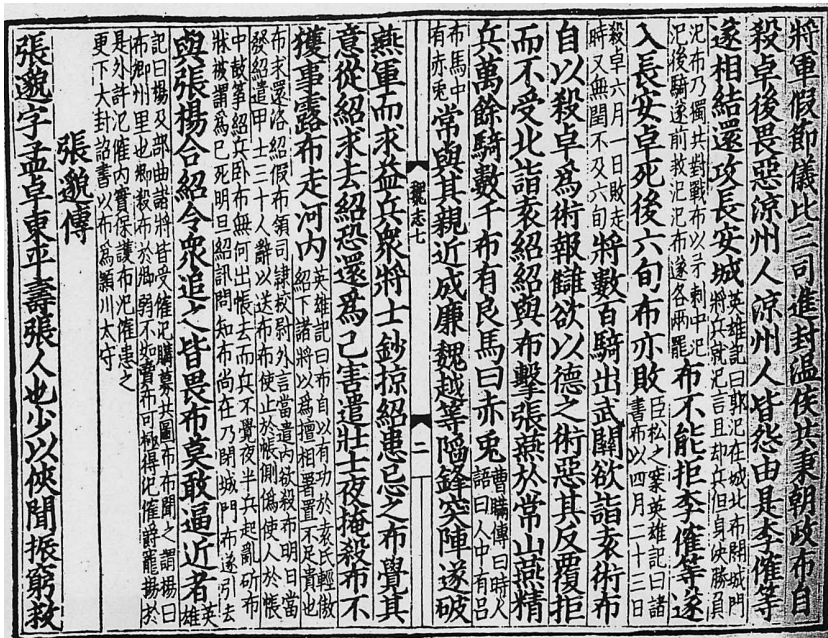 將軍假節儀比三司進封温侯共秉朝政布自
殺卓後畏惡涼州人涼州人皆怨由是李傕等
遂相結還攻長安城
英雄記曰郭汜在城北布開城門
將兵就汜言且却兵但身決勝負
汜布乃獨共對戰布以矛刺中汜
汜後騎遂前救汜汜布遂各兩罷
布不能拒李傕等遂
入長安卓死後六旬布亦敗
臣松之案英雄記曰諸
書布以四月二十三日
殺卓六月一日敗走
時又無閏不及六旬
將數百騎出武關欲詣袁術布
自以殺卓爲術報讎欲以德之術惡其反覆拒
而不受北詣袁紹紹與布擊張燕於常山燕精
兵萬餘騎數千布有良馬曰赤兔
曹瞞傳曰時人
語曰人中有吕
布馬中
有赤兎
常與其親近成廉魏越等陷鋒突陣遂破
魏志七
二
燕軍而求益兵衆將士鈔掠紹患忌之布覺其
意從紹求去紹恐還爲己害遣壯士夜掩殺布不
獲事露布走河内
英雄記曰布自以有功於袁氏輕傲
紹下諸將以爲擅相署置不足貴也
布求還洛紹假布領司隷校尉外言當遣内欲殺布明日當
發紹遣甲士三十人辭以送布布使止於帳側僞使人於帳
中鼓箏紹兵卧布無何出帳去而兵不覺夜半兵起亂斫布
牀被謂爲已死明旦紹訊問知布尚在乃閉城門布遂引去
與張楊合紹令衆追之皆畏布莫敢逼近者
英
雄
記曰楊及部曲諸將皆受傕汜購募共圖布布聞之謂楊曰
布卿州里也卿殺布於卿弱不如賣布可極得汜傕爵寵楊於
是外許汜傕内實保護布汜傕患之
更下大封詔書以布爲潁川太守
張邈傳
張邈字孟卓東平壽張人也少以俠聞振窮救